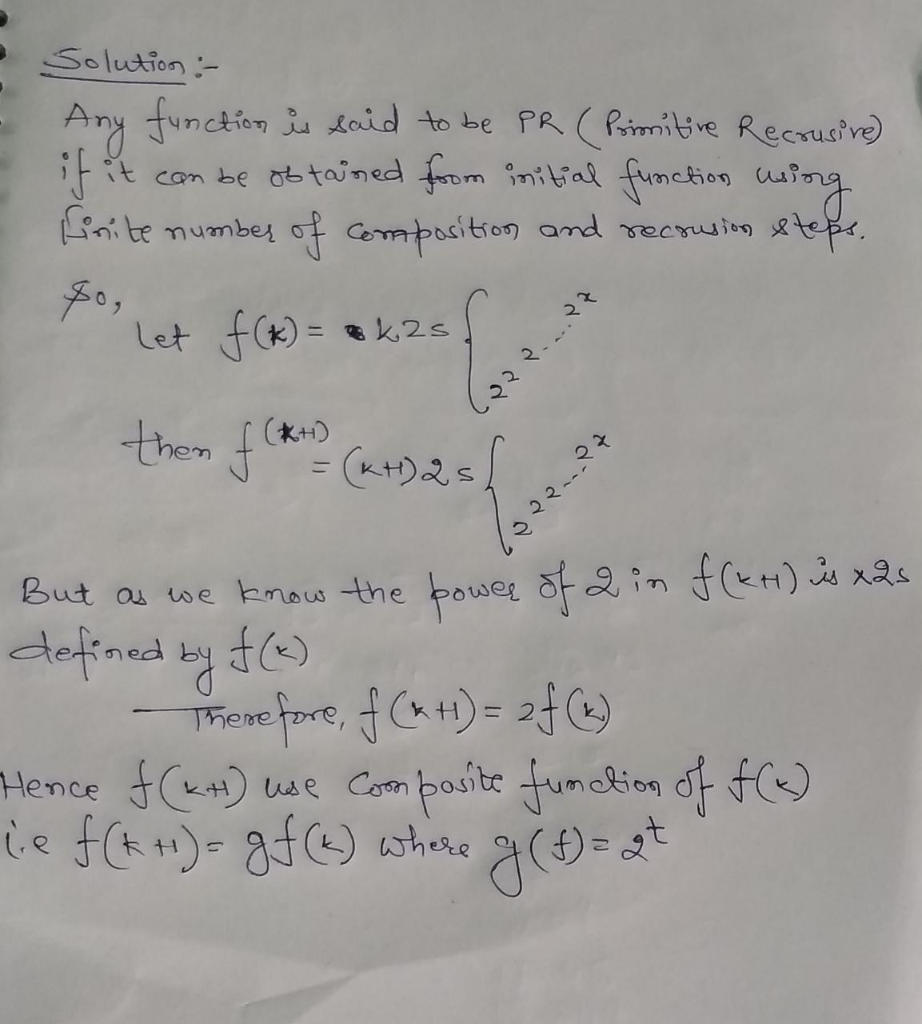 Solution :-
Any function is said to be PR ( Primitive Recrusive)
if it can be obtained from initial function using
finite number of composition and recrusion steps.
So,
let f(k) = k2s { 2^2^2^...^2^x
then f(k+1) = (k+1)2s { 2^2^2^...^2^x
But as we know the power of 2 in f(k+1) is x2s
defined by f(k)
Therefore, f(k+1) = 2f(k)
Hence f(k+1) use Composite function of f(k)
i.e f(k+1) = gf(k) where g(t) = 2^t